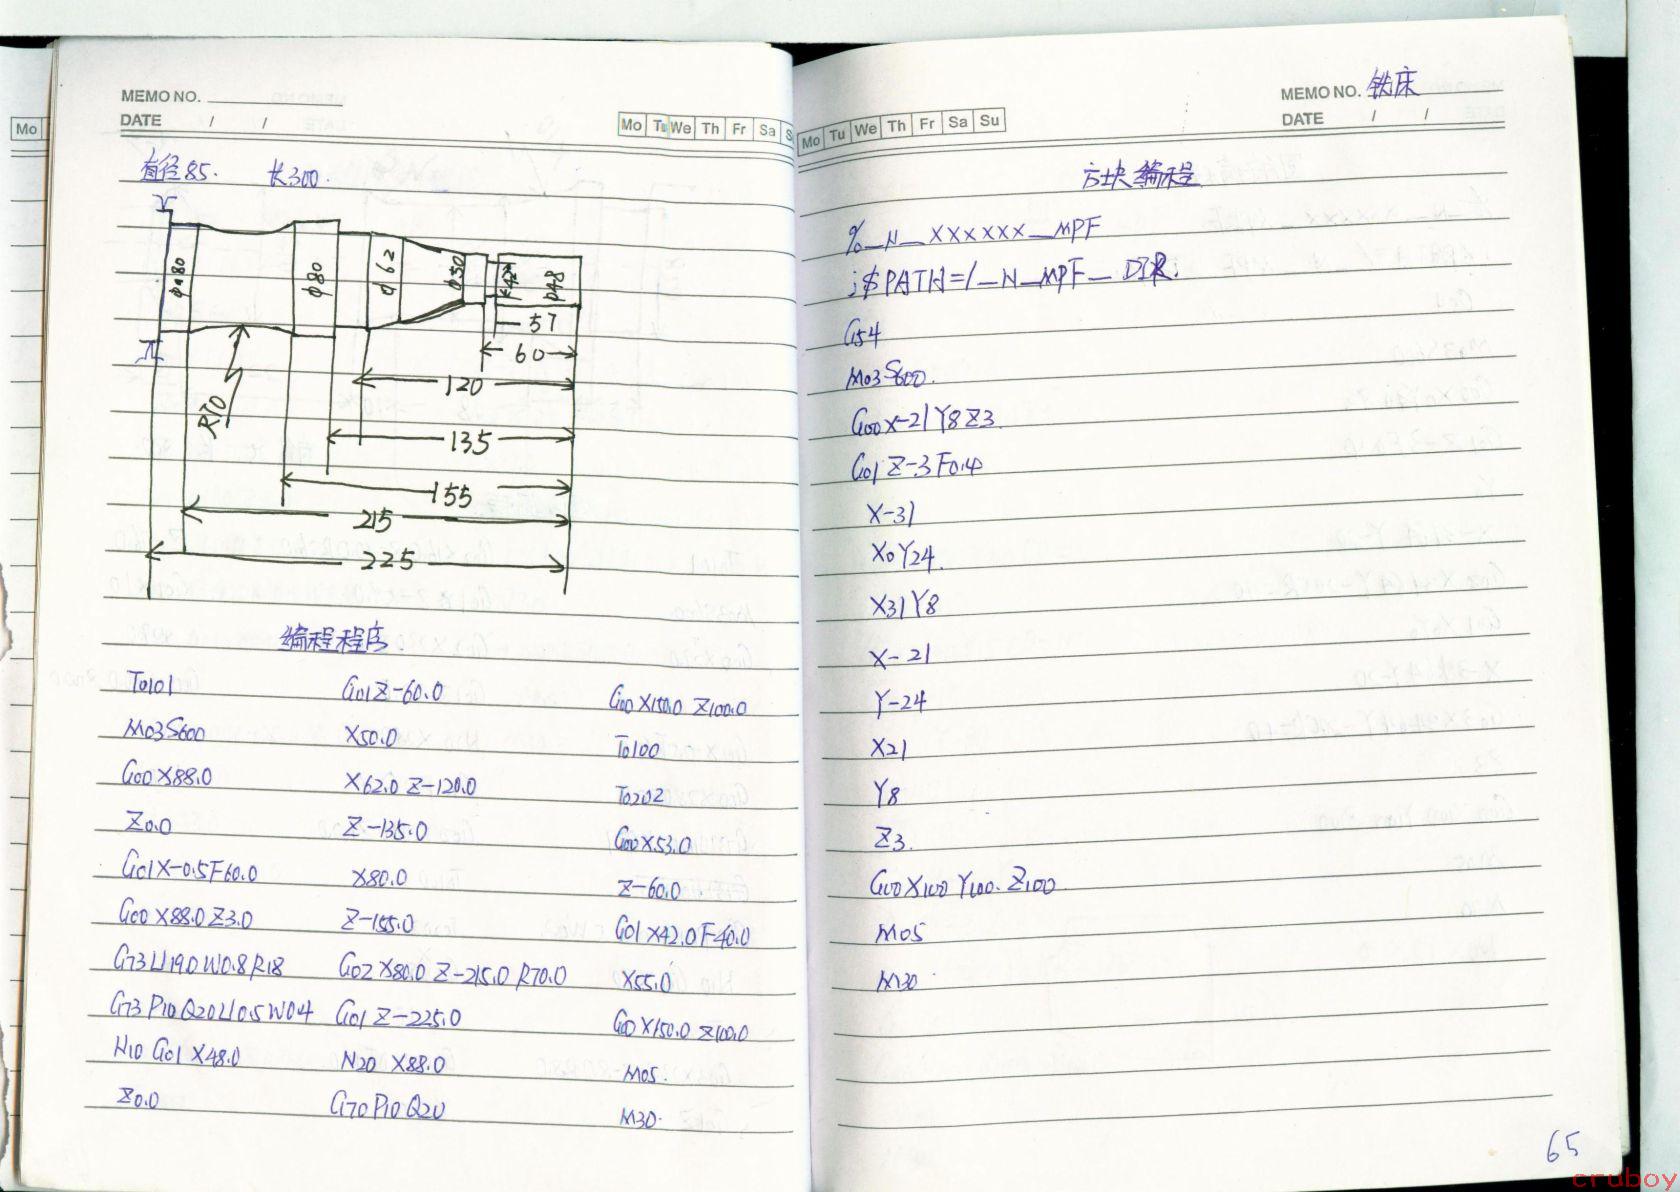 Mo
MEMO NO.
DATE / /
Mo Tu We Th Fr Sa S
直径85. 长300.
φ80
φ80
φ62
φ50
φ48
57
60
120
R70
135
155
215
225
编程程序
T0101
M03S600
G00X88.0
Z0.0
G01X-0.5F60.0
G00X88.0Z3.0
G73U19.0W0.8R18
G73P10Q20U0.5W0.4
N10 G01X48.0
Z0.0
G01Z-60.0
X50.0
X62.0 Z-120.0
Z-135.0
X80.0
Z-155.0
G02X80.0 Z-215.0 R70.0
G01Z-225.0
N20 X88.0
G70P10Q20
G00X150.0 Z100.0
T0100
T0202
G00X53.0
Z-60.0
G01X42.0F40.0
X55.0
G00X150.0 Z100.0
M05.
M30.
Mo Tu We Th Fr Sa Su
MEMO NO. 铣床
DATE / /
方块编程
%_N_XXXXXX_MPF
;$PATH=/_N_MPF_DIR.
G54
M03S600.
G00X-21Y8Z3.
G01Z-3F0.4
X-31
X0Y24.
X31Y8
X-21
Y-24
X21
Y8
Z3.
G00X100Y100.Z100
M05
M30.
65
cruboy